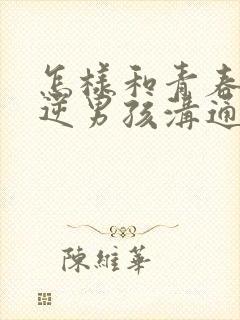 怎樣和青春
逆男孩溝通
陳維華